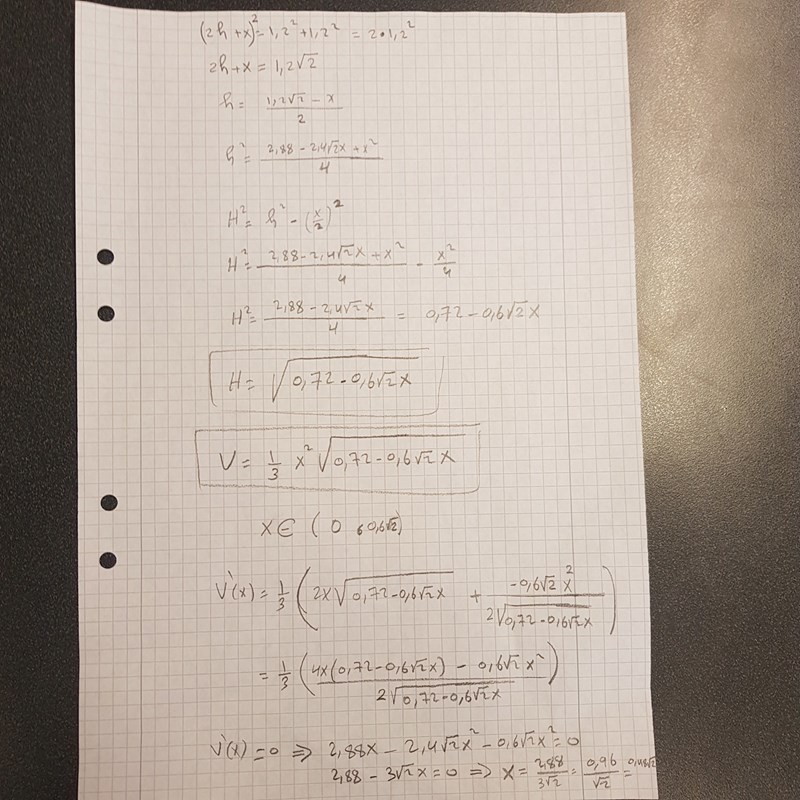 (2h+x)² = 1,2² + 1,2² = 2•1,2²
2h+x = 1,2√2
h = (1,2√2 − x)/2
h² = (2,88 − 2,4√2x + x²)/4
H² = h² − (x/2)²
H² = (2,88 − 2,4√2x + x²)/4 − x²/4
H² = (2,88 − 2,4√2x)/4 = 0,72 − 0,6√2x
H = √(0,72 − 0,6√2x)
V = 1/3 x² √(0,72 − 0,6√2x)
x∈ (0 6 0,6√2)
V'(x) = 1/3 (2x√(0,72 − 0,6√2x) + (−0,6√2 x²)/(2√(0,72 − 0,6√2x)))
= 1/3 ((4x(0,72 − 0,6√2x) − 0,6√2x²)/(2√(0,72 − 0,6√2x)))
V'(x) = 0 ⇒ 2,88x − 2,4√2x² − 0,6√2x² = 0
2,88 − 3√2x = 0 ⇒ x = 2,88/(3√2) = 0,96/√2 = 0,48√2